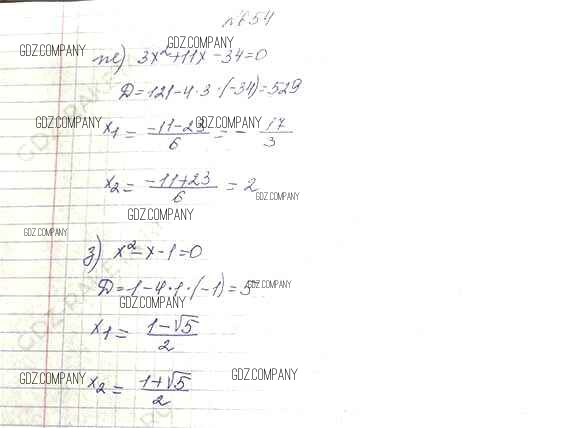 №654
GDZ.COMPANY
GDZ.COMPANY
ж) 3x²+11x-34=0
D=121-4·3·(-34)=529
GDZ.COMPANY
GDZ.COMPANY
x₁ = (-11-23)/6 = -17/3
x₂ = (-11+23)/6 = 2
GDZ.COMPANY
GDZ.COMPANY
GDZ.COMPANY
з) x²-x-1=0
D=1-4·1·(-1)=5
GDZ.COMPANY
GDZ.COMPANY
x₁ = (1-√5)/2
GDZ.COMPANY
GDZ.COMPANY
x₂ = (1+√5)/2